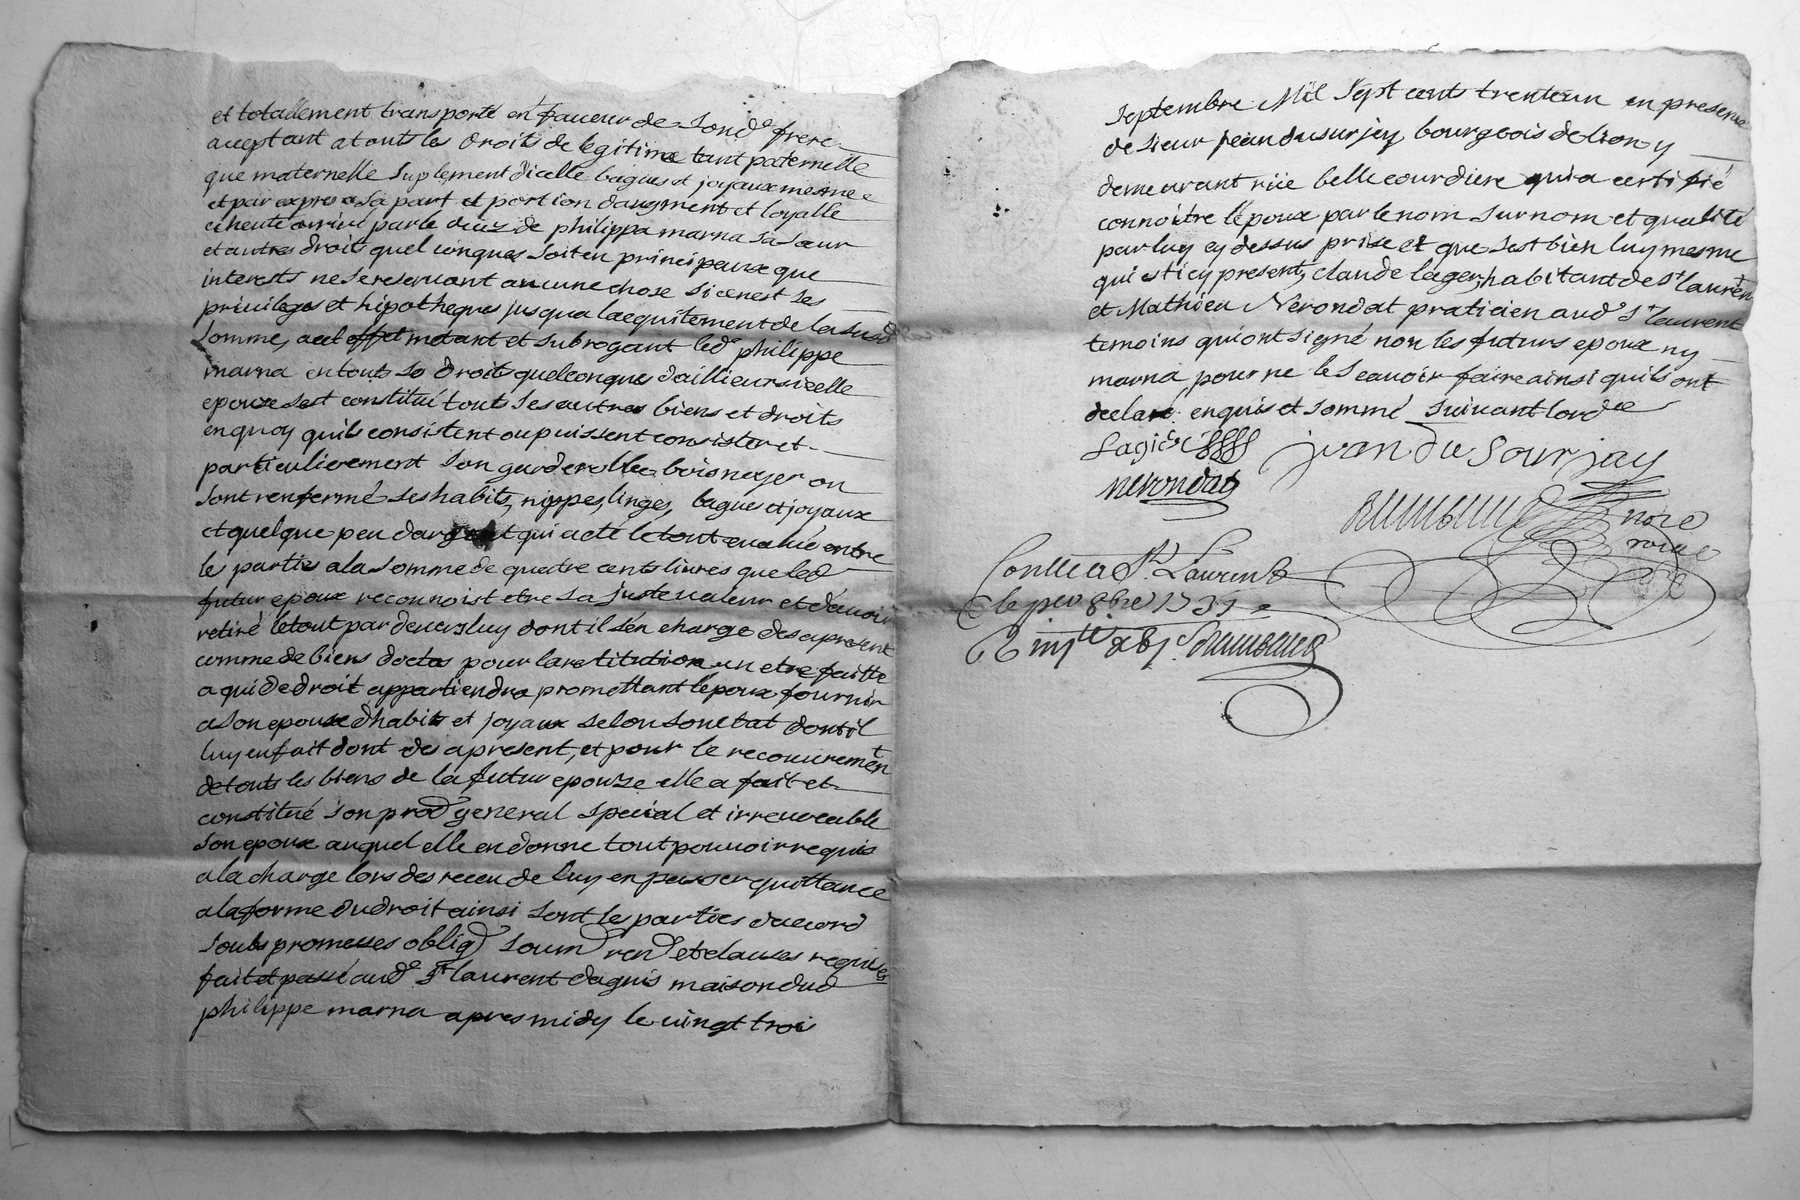 et totallement transporté en faueur de son d.e frere
aceptant a touts les droits de legitime tant paternelle
que maternelle suplement dicelle bagues et joyaux mesme
et par expres a sa part et portion daugment et loyalle
echeute arrivé par le décéz de philippa marna sa sœur
et autres droits quelconques soit en principaux que
interests ne se reseruant aucune chose si ce nest ses
priuileges et hipotheques jusqua lacquitement de la susd.
somme, a cet effet metant et subrogant led.e philippe
marna en touts ses droits quelconques dailleurs icelle
epouze sest constitué touts ses autres biens et droits
en quoy quils consistent ou puissent consister et
particulierement son garderobbe bois noyer ou
sont renfermé ses habits, nippes, linges, bagues et joyaux
et quelque peu dargent qui a eté le tout eualué entre
les parties a la somme de quatre cents livres que led
futur epoux reconnoist etre sa juste ualeur et dauoir
retiré le tout par deuers luy dont il sén charge des apresent
comme de biens doctas pour la restitution en etre faitte
a qui de droit appartiendra promettant lépoux fournir
a son epouse dhabits et joyaux selon son etat dont il
luy en fait dont des apresent, et pour le recouurement
de touts les biens de la futur epouze elle a fait et
constitué son prod general special et irreuocable
son epoux auquel elle en donne tout pouuoir requis
a la charge lors des receu de luy en passer quittance
a la forme du droit ainsi sont les parties daccord
soubs promesses obligd soumd rend et clauses requises
fait et passé aud.e st laurent dagnis maison dud
philippe marna apres midy le vingt trois
septembre Mil sept cents trente un en presence
de sieur jean du surjey bourgeois de lion y
demeurant rüe belle courdiere qui a certifié
connoitre lépoux par le nom surnom et qualité
par luy cy dessus prise et que sest bien luy mesme
qui est icy present, claude lager, habitant de st laurent
et Mathieu Nérondat praticien aud.e st laurent
temoins qui ont signé non les futurs epoux ny
marna pour ne le scauoir faire ainsi quils ont
declaré enquis et sommé suivant lord.ce
jean du Sourjay
nerondat
nore
royal
Conllé a St Laurent
le per 8bre 1731